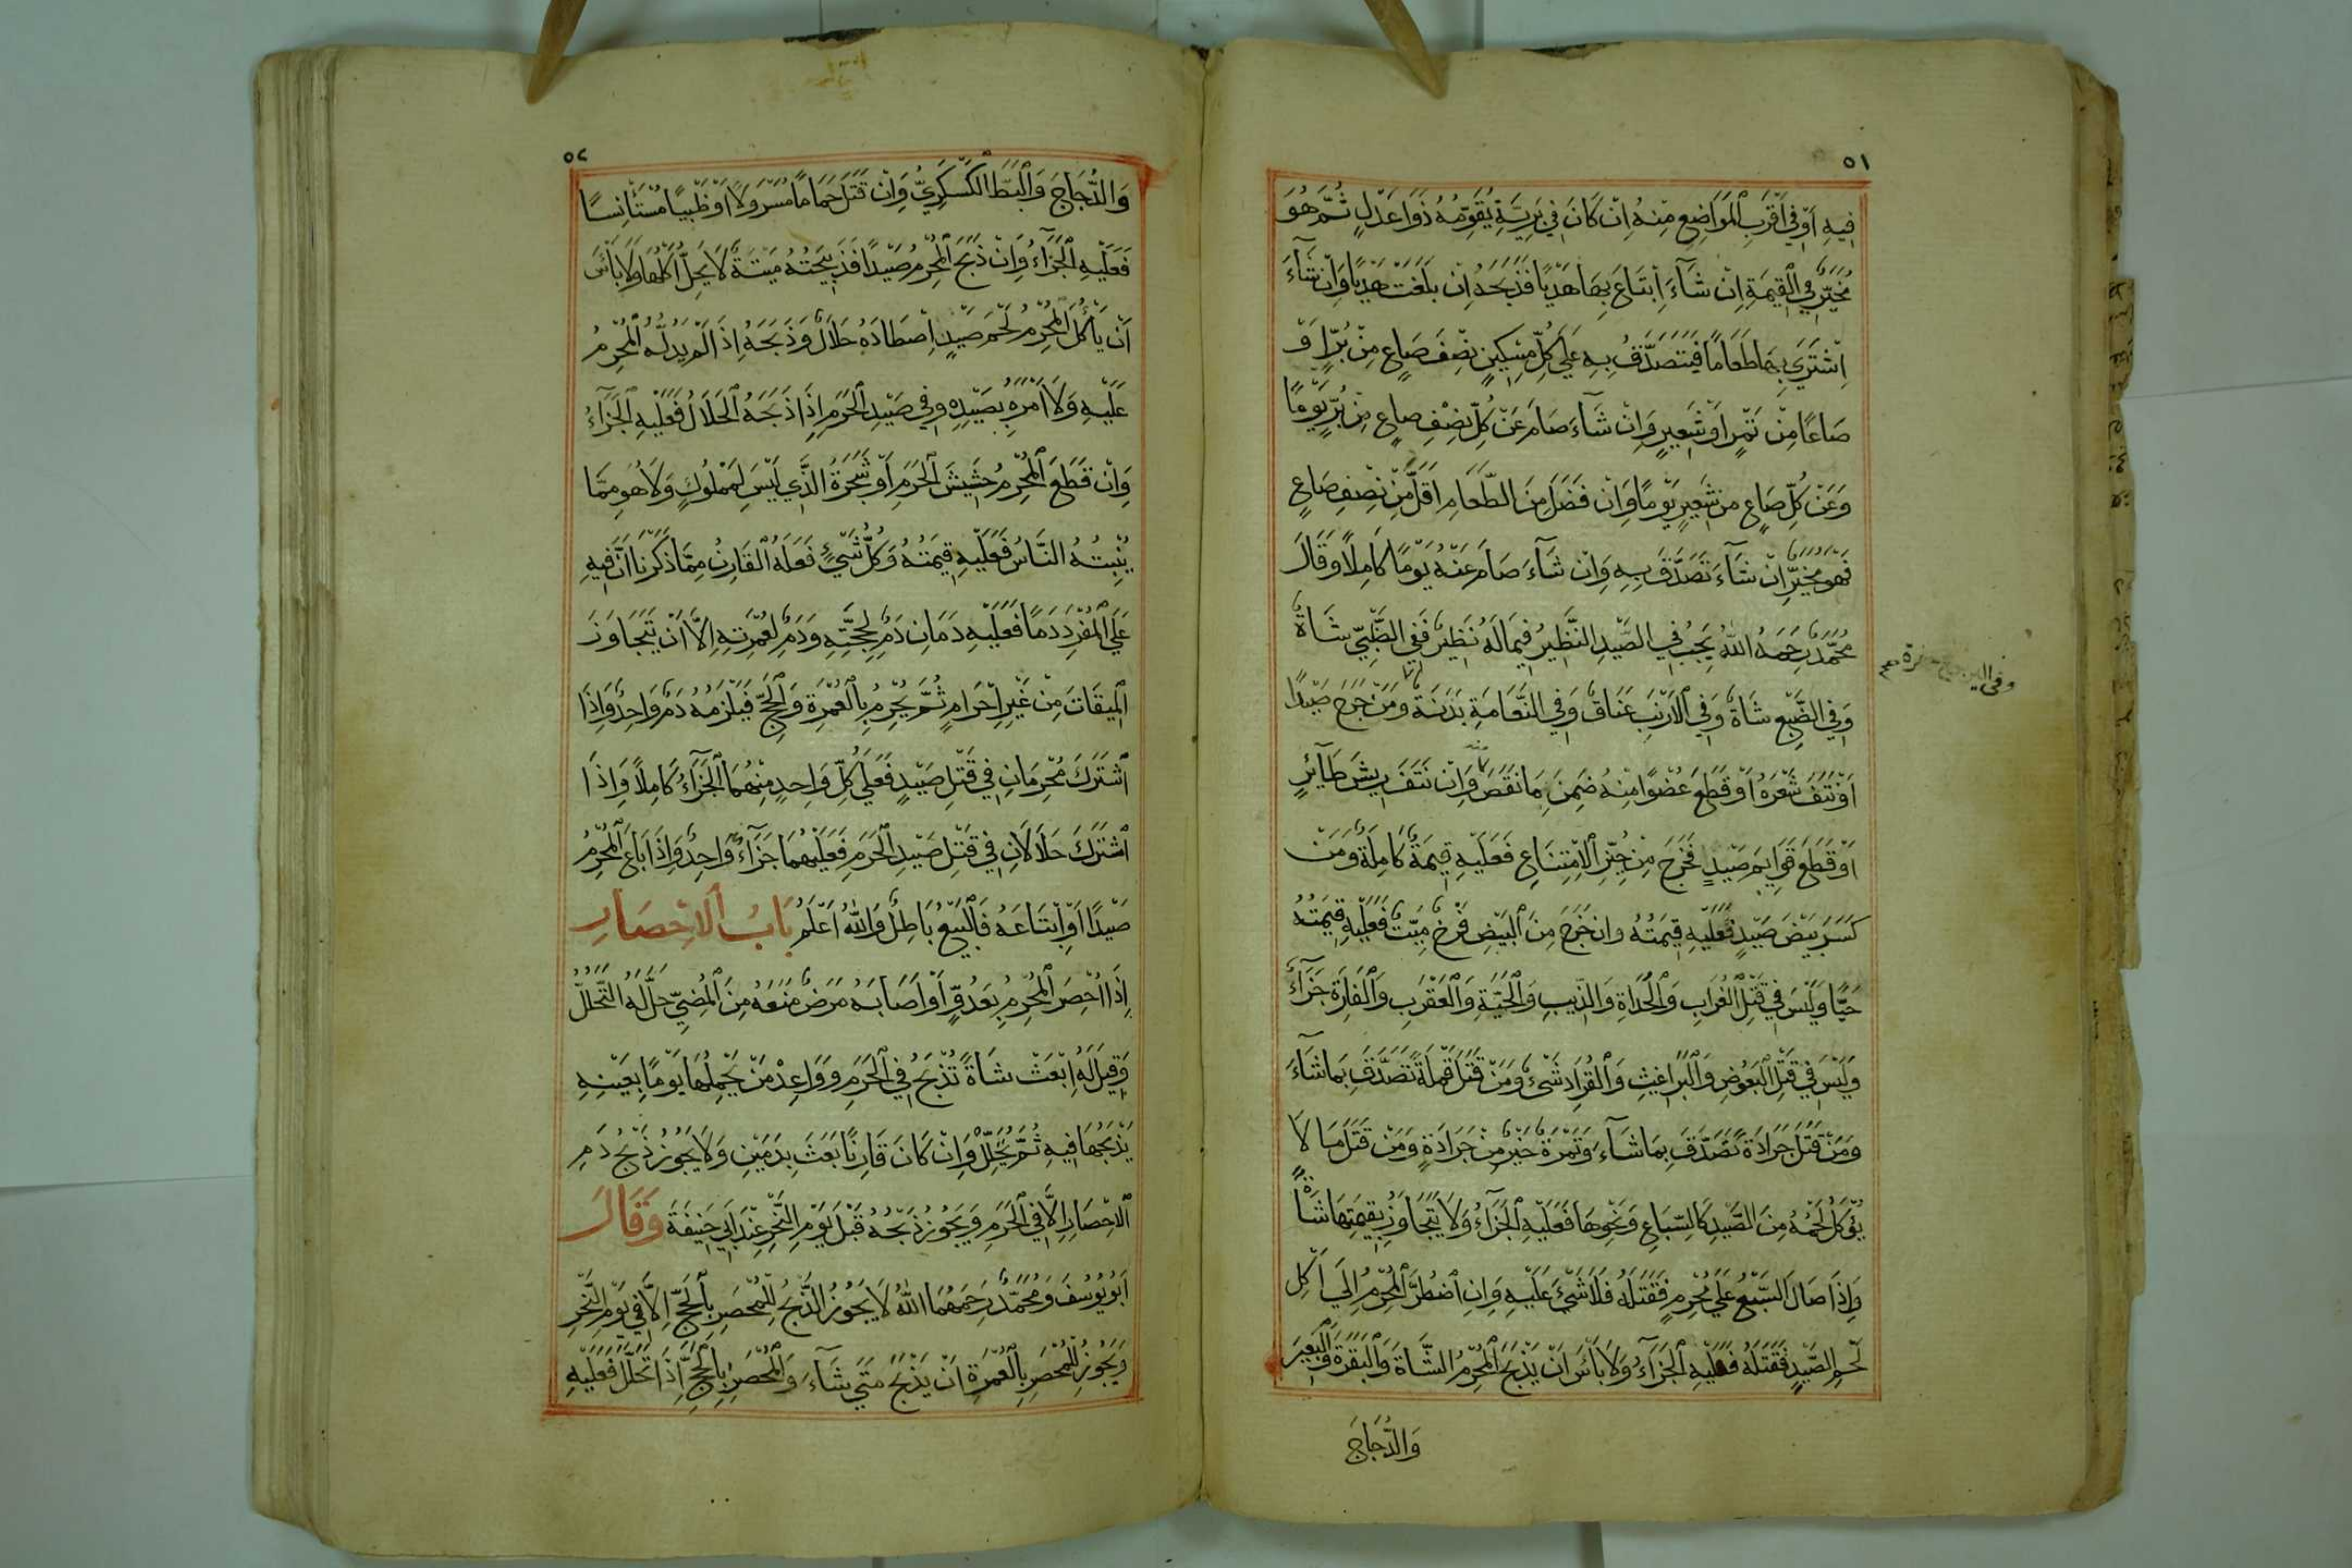 ٥١
فِيهِ اَوْ فِي اَقْرَبِ الْمَوَاضِعِ مِنْهُ اِنْ كَانَ فِي بَرِيَّةٍ يُقَوِّمُهُ ذَوَا عَدْلٍ ثُمَّ هُوَ
مُخَيَّرٌ فِي الْقِيمَةِ اِنْ شَآءَ اِبْتَاعَ بِهَا هَدْيًا فَذَبَحَهُ اِنْ بَلَغَتْ هَدْيًا وَاِنْ شَآءَ
اِشْتَرَي بِهَا طَعَامًا فَيَتَصَدَّقُ بِهِ عَلَي كُلِّ مِسْكِينٍ نِصْفَ صَاعٍ مِنْ بُرٍّ اَوْ
صَاعًا مِنْ تَمْرٍ اَوْ شَعِيرٍ وَاِنْ شَآءَ صَامَ عَنْ كُلِّ نِصْفِ صَاعٍ مِنْ بُرٍّ يَوْمًا
وَعَنْ كُلِّ صَاعٍ من شَعِيرٍ يَوْمًا وَاِنْ فَضَلَ مِنَ الطَّعَامِ اَقَلُّ مِنْ نِصْفِ صَاعٍ
فَهُوَ مُخَيَّرٌ اِنْ شَآءَ تَصَدَّقَ بِهِ وَاِنْ شَآءَ صَامَ عَنْهُ يَوْمًا كَامِلًا وَقَالَ
مُحَمَّدٌ رَحِمَهُ اللهُ يَجِبُ فِي الصَّيْدِ النَّظِيرُ فِيمَا لَهُ نَظِيرٌ فَفِي الظَّبْيِ شَاةٌ
وَفِي الضَّبُعِ شَاةٌ وَفِي الْاَرْنَبِ عَنَاقٌ وَفِي النَّعَامَةِ بَدَنَةٌ وَمَنْ جَرَحَ صَيْدًا
اَوْ نَتَفَ شَعْرَهُ اَوْ قَطَعَ عُضْوًا مِنْهُ ضَمِنَ مَا نَقَصَ وَاِنْ نَتَفَ رِيشَ طَآئِرٍ
اَوْ قَطَعَ قَوَايِمَ صَيْدٍ فَخَرَجَ مِنْ حَيِّزِ الْاِمْتِنَاعِ فَعَلَيْهِ قِيمَةٌ كَامِلَةٌ وَمَنْ
كَسَرَ بَيْضَ صَيْدٍ فَعَلَيْهِ قِيمَتُهُ وان خَرَجَ مِنَ الْبَيْضِ فَرْخٌ مَيِّتٌ فَعَلَيْهِ قِيمَتُهُ
حَيًّا وَلَيْسَ فِي قَتْلِ الْغُرَابِ وَالْحُدَاةِ وَالذِّيبِ وَالْحَيَّةِ وَالْعَقْرَبِ وَالْفَارَةِ جَزَآءٌ
وَلَيْسَ فِي قَتْلِ الْبَعُوضِ وَالْبَرَاغِيثِ وَالْقُرَادِ شَيْءٌ وَمَنْ قَتَلَ قَمْلَةً تَصَدَّقَ بِمَا شَآءَ
وَمَنْ قَتَلَ جَرَادَةً تَصَدَّقَ بِمَا شَآءَ وَتَمْرَةٌ خَيْرٌ مِنْ جَرَادَةٍ وَمَنْ قَتَلَ مَا لَا
يُؤْكَلُ لَحْمُهُ مِنَ الصَّيْدِ كَالسِّبَاعِ وَنَحْوِهَا فَعَلَيْهِ الْجَزَآءُ وَلَا يَتَجَاوَزُ بِقِيمَتِهَا شَاةً
وَاِذَا صَالَ السَّبُعُ عَلَي مُحْرِمٍ فَقَتَلَهُ فَلَا شَيْءَ عَلَيْهِ وَاِنِ اضْطُرَّ الْمُحْرِمُ اِلَي اَكْلِ
لَحْمِ الصَّيْدِ فَقَتَلَهُ فَعَلَيْهِ الْجَزَآءُ وَلَا بَأْسَ اَنْ يَذْبَحَ الْمُحْرِمُ الشَّاةَ وَالْبَقَرَةَ وَالْبَعِيرَ
وَالدُّجَاجَ
٥٢
وَالدُّجَاجَ وَالْبَطَّ الْكَسْكَرِيَّ وَاِنْ قَتَلَ حَمَامًا مُسَرْوَلًا اَوْ ظَبْيًا مُسْتَأْنِسًا
فَعَلَيْهِ الْجَزَآءُ وَاِنْ ذَبَحَ الْمُحْرِمُ صَيْدًا فَذَبِيحَتُهُ مَيْتَةٌ لَا يَحِلُّ اَكْلُهَا وَلَا بَأْسَ
اَنْ يَأْكُلَ الْمُحْرِمُ لَحْمَ صَيْدٍ اِصْطَادَهُ حَلَالٌ وَذَبَحَهُ اِذَا لَمْ يَدُلَّهُ الْمُحْرِمُ
عَلَيْهِ وَلَا اَمَرَهُ بِصَيْدِهِ وَفِي صَيْدِ الْحَرَمِ اِذَا ذَبَحَهُ الْحَلَالُ فَعَلَيْهِ الْجَزَآءُ
وَاِنْ قَطَعَ الْمُحْرِمُ حَشِيشَ الْحَرَمِ اَوْ شَجَرَةُ الَّذِي لَيْسَ لِمَمْلُوكٍ وَلَا هُوَ مِمَّا
يُنْبِتُهُ النَّاسُ فَعَلَيْهِ قِيمَتُهُ وَكُلُّ شَيْءٍ فَعَلَهُ الْقَارِنُ مِمَّا ذَكَرْنَا اَنَّ فِيهِ
عَلَي الْمُفْرِدِ دَمًا فَعَلَيْهِ دَمَانِ دَمٌ لِحَجَّتِهِ وَدَمٌ لِعُمْرَتِهِ اِلَّا اَنْ يَتَجَاوَزَ
الْمِيقَاتَ مِنْ غَيْرِ اِحْرَامٍ ثُمَّ يُحْرِمُ بِالْعُمْرَةِ وَالْحَجِّ فَيَلْزَمُهُ دَمٌ وَاحِدٌ وَاِذَا
اشْتَرَكَ مُحْرِمَانِ فِي قَتْلِ صَيْدٍ فَعَلَي كُلِّ وَاحِدٍ مِنْهُمَا الْجَزَآءُ كَامِلًا وَاِذَا
اشْتَرَكَ حَلَالَانِ فِي قَتْلِ صَيْدِ الْحَرَمِ فَعَلَيْهِمَا جَزَآءٌ وَاحِدٌ وَاِذَا بَاعَ الْمُحْرِمُ
صَيْدًا اَوِ ابْتَاعَهُ فَالْبَيْعُ بَاطِلٌ وَاللهُ اَعْلَمُ بَابُ الْاِحْصَارِ
اِذَا اُحْصِرَ الْمُحْرِمُ بِعَدُوٍّ اَوْ اَصَابَهُ مَرَضٌ مَنَعَهُ مِنَ الْمُضِيِّ حَلَّ لَهُ التَّحَلُّلُ
وَقِيلَ لَهُ اِبْعَثْ شَاةً تُذْبَحُ فِي الْحَرَمِ وَوَاعِدْ مَنْ يَحْمِلُهَا يَوْمًا بِعَيْنِهِ
يَذْبَحُهَا فِيهِ ثُمَّ يَحَلَّلُ وَاِنْ كَانَ قَارِنًا بَعَثَ بِدَمَيْنِ وَلَا يَجُوزُ ذَبْحُ دَمِ
الْاِحْصَارِ اِلَّا فِي الْحَرَمِ وَيَجُوزُ ذَبْحُهُ قَبْلَ يَوْمِ النَّحْرِ عِنْدَ اَبِي حَنِيفَةَ وَقَالَ
اَبُو يُوسُفَ وَمُحَمَّدٌ رَحِمَهُمَا اللهُ لَا يَجُوزُ الذَّبْحُ لِلْمُحْصَرِ بِالْحَجِّ اِلَّا فِي يَوْمِ النَّحْرِ
وَيَجُوزُ لِلْمُحْصَرِ بِالْعُمْرَةِ اَنْ يَذْبَحَ مَتَي شَآءَ وَالْمُحْصَرِ بِالْحَجِّ اِذَا تَحَلَّلَ فَعَلَيْهِ